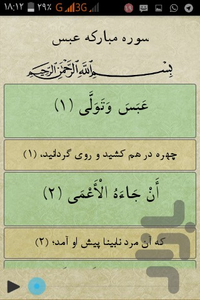 ۱۸:۱۲ ۲۹% G 3G
سوره مبارکه عبس
بِسْمِ اللَّهِ الرَّحْمَنِ الرَّحِيمِ
عَبَسَ وَتَوَلَّى (۱)
چهره در هم کشید و روی گردانید، (۱)
أَنْ جَاءَهُ الْأَعْمَى (۲)
که آن مرد نابینا پیش او آمد؛ (۲)
بازار